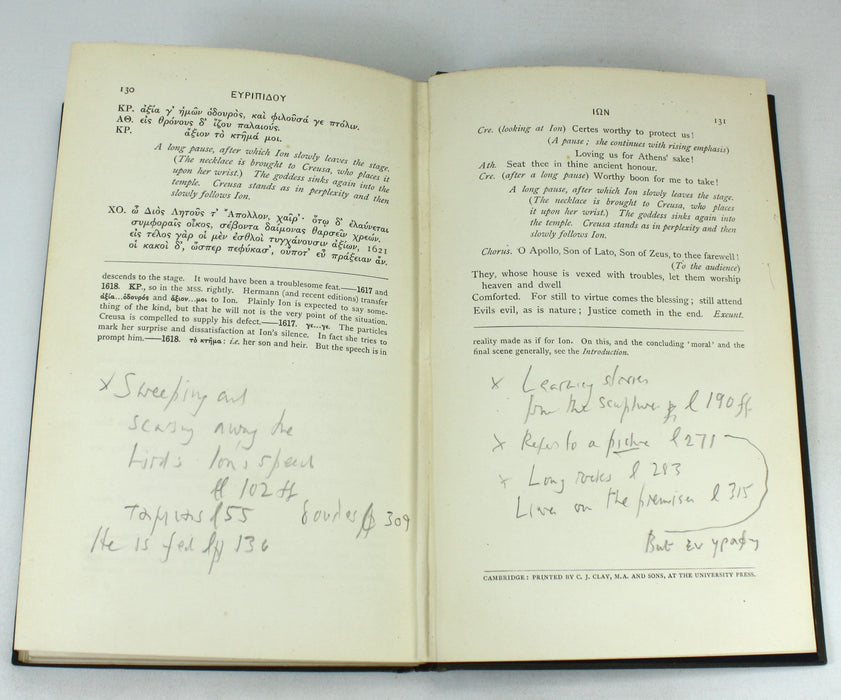 130
ΕΥΡΙΠΙΔΟΥ
ΚΡ. ἀξία γ' ἡμῶν ὁδουρός, καὶ φιλοῦσά γε πτόλιν.
ΑΘ. εἰς θρόνους δ' ἵζου παλαιούς.
ΚΡ. ἄξιον τὸ κτῆμά μοι.
A long pause, after which Ion slowly leaves the stage.
(The necklace is brought to Creusa, who places it
upon her wrist.) The goddess sinks again into the
temple. Creusa stands as in perplexity and then
slowly follows Ion.
ΧΟ. ὦ Διὸς Λητοῦς τ' Ἄπολλον, χαῖρ'· ὅτῳ δ' ἐλαύνεται
συμφοραῖς οἶκος, σέβοντα δαίμονας θαρσεῖν χρεών.
εἰς τέλος γὰρ οἱ μὲν ἐσθλοὶ τυγχάνουσιν ἀξίων, 1621
οἱ κακοὶ δ', ὥσπερ πεφύκασ', οὔποτ' εὖ πράξειαν ἄν.
descends to the stage. It would have been a troublesome feat.—1617 and
1618. ΚΡ., so in the MSS. rightly. Hermann (and recent editions) transfer
ἀξία...ὁδουρός and ἄξιον...μοι to Ion. Plainly Ion is expected to say some-
thing of the kind, but that he will not is the very point of the situation.
Creusa is compelled to supply his defect.—1617. γε...γε. The particles
mark her surprise and dissatisfaction at Ion's silence. In fact she tries to
prompt him.—1618. τὸ κτῆμα: i.e. her son and heir. But the speech is
x Sweeping and
scaring away the
birds Ion's speech
ll 102 ff
ταμιας l 55 δουλος 309
He is fed 136
ΙΩΝ
131
Cre. (looking at Ion) Certes worthy to protect us!
(A pause; she continues with rising emphasis)
Loving us for Athens' sake!
Ath. Seat thee in thine ancient honour.
Cre. (after a long pause) Worthy boon for me to take!
A long pause, after which Ion slowly leaves the stage.
(The necklace is brought to Creusa, who places
it upon her wrist.) The goddess sinks again into
the temple. Creusa stands as in perplexity and then
slowly follows Ion.
Chorus. O Apollo, Son of Lato, Son of Zeus, to thee farewell!
(To the audience)
They, whose house is vexed with troubles, let them worship
heaven and dwell
Comforted. For still to virtue comes the blessing; still attend
Evils evil, as is nature; Justice cometh in the end. Exeunt.
reality made as if for Ion. On this, and the concluding 'moral' and the
final scene generally, see the Introduction.
x Learning stories
from the sculpture l 190 ff
x Refers to a picture l 271
x Long rocks l 283
Lives on the premises l 315
But εν γραφῃ
CAMBRIDGE: PRINTED BY C. J. CLAY, M.A. AND SONS, AT THE UNIVERSITY PRESS.